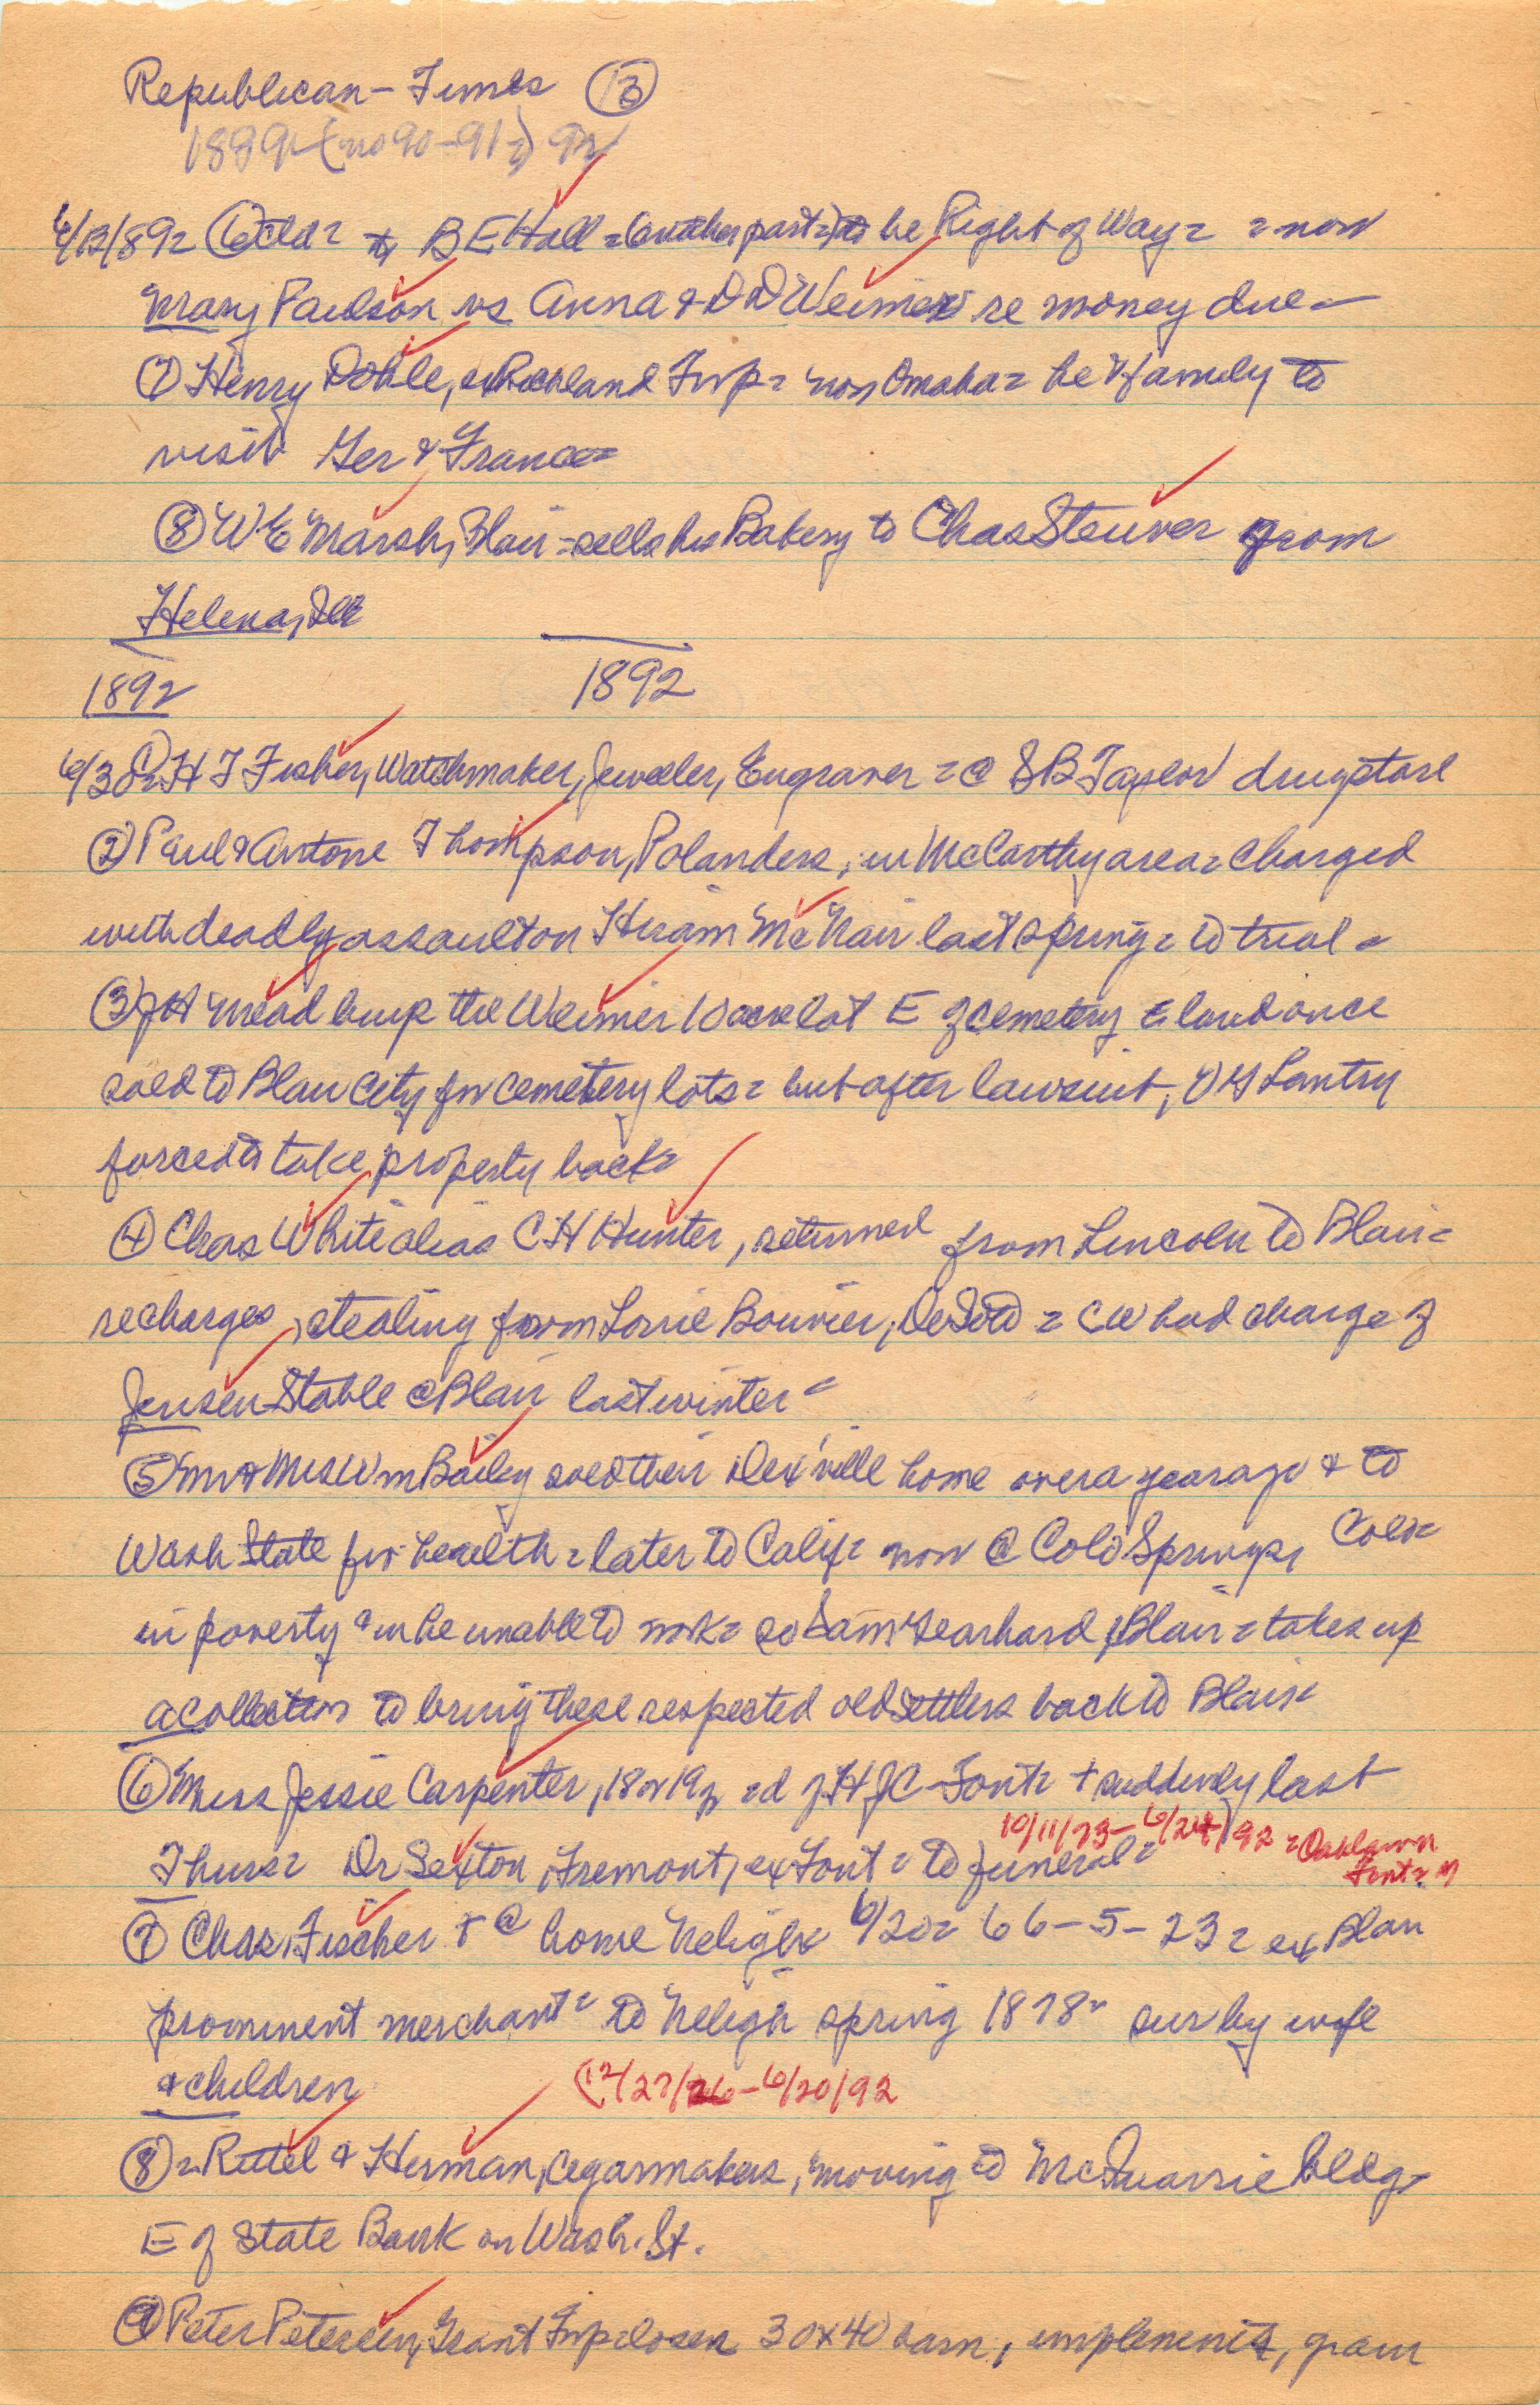 Republican-Times (13)
1889 (no 90-91) 92
B E Hall = be Right of Way = = now
Mary Paulson vs Anna & D D Weimer re money due =
(7) Henry Dohle, ex Richland Twp = now Omaha = he & family to
visit Ger & France =
(8) W E Marsh, Blair = sells his Bakery to Chas Steuver from
Helena,
1892 1892
6/30 H J Fisher, Watchmaker, Jeweler, Engraver = @ S B Taylor drugstore
(2) Paul & Antone Thompson, Polanders, in McCarthy area = charged
with deadly assault on Hiram McNair last spring = to trial =
(3) J H Mead buys the Weimer 10 acre lot E of cemetery = land once
sold to Blair City for cemetery lots = but after lawsuit, Lantry
forced to take property back =
(4) Chas White alias C H Hunter, returned from Lincoln to Blair =
re charges, stealing from Lorrie Bouvier, DeSoto = CW had charge of
Jensen Stable @ Blair last winter =
(5) Mr & Mrs Wm Bailey sold their Dex'ville home over a year ago & to
Wash State for health = later to Calif = now @ Colo Springs, Colo =
in poverty = w he unable to work = so Sam Gearhard, Blair = takes up
a collection to bring these respected old settlers back to Blair
(6) Miss Jessie Carpenter, 18 or 19y, = d of H J C - Font = + suddenly last
10/11/73 - 6/24/92 = Oaklawn
Thurs = Dr Sexton, Fremont, ex Font = to funeral =
Font =
(7) Chas. Fischer + @ home Neligh 6/20 = 66-5-23 = ex Blair
prominent merchant = to Neligh spring 1878 = sur by wife
& children (12/27/26 - 6/20/92
(8) = Ruttel & Herman, cigarmakers, moving to McQuarrie bldg =
E of State Bank on Wash. St.
(9) Peter Petersen, Grant Twp loses 30x40 barn, implements, grain